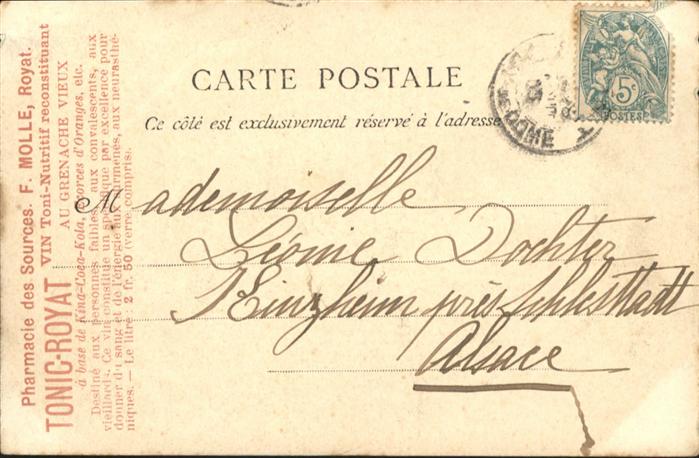 Pharmacie des Sources. F. MOLLE, Royat.
VIN Toni-Nutritif reconstituant
TONIC-ROYAT AU GRENACHE VIEUX
à base de Kina-Coca-Kola, écorces d'Oranges, etc.
Destiné aux personnes faibles, aux convalescents, aux
vieillards. Ce vin constitue un spécifique par excellence pour
donner du sang et de l'énergie aux surmenés, aux neurasthé-
niques. — Le litre : 2 fr. 50 (verre compris).
CARTE POSTALE
Ce côté est exclusivement réservé à l'adresse
Mademoiselle
Léonie Dochter
Kinzheim près Schlestadt
Alsace
5c
POSTES
DOME